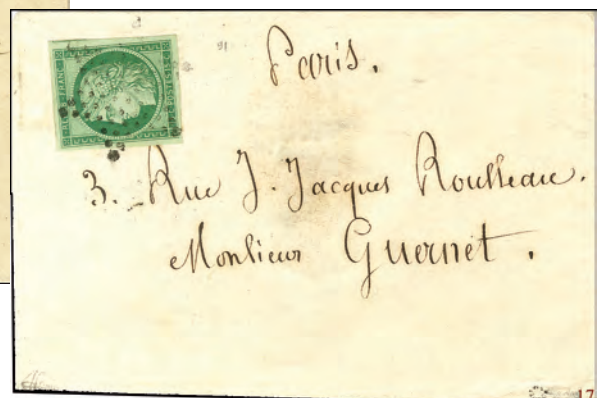 Paris.
3. Rue J. Jacques Rousseau.
Monsieur Guernet.
17